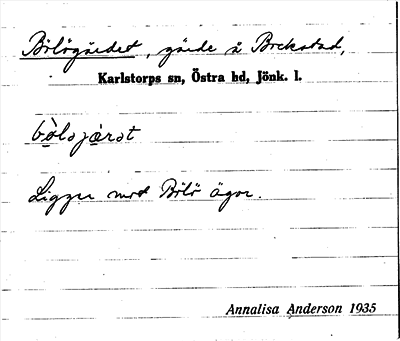 Bölögärdet, gärde å Brekstad,
Karlstorps sn, Östra hd, Jönk. l.
bòləjæ̀rət
Ligger mot Bölö ägor.
Annalisa Anderson 1935